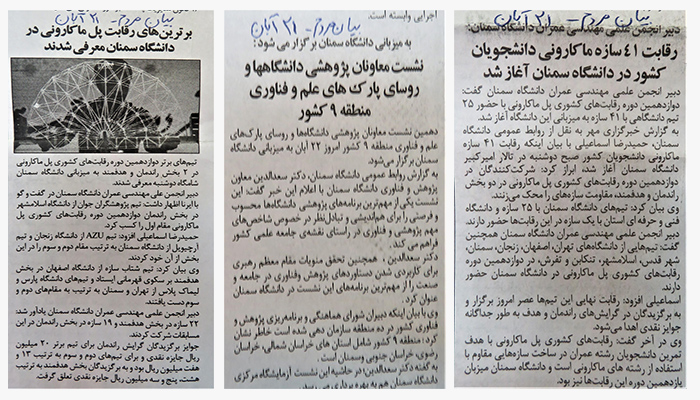 بیان مردم - ۲۱ آبان
دبیر انجمن علمی مهندسی عمران دانشگاه سمنان:
رقابت ۴۱ سازه ماکارونی دانشجویان
کشور در دانشگاه سمنان آغاز شد
دبیر انجمن علمی مهندسی عمران دانشگاه سمنان گفت:
دوازدهمین دوره رقابت‌های کشوری پل ماکارونی با حضور ۲۵
تیم دانشگاهی با ۴۱ سازه به میزبانی این دانشگاه آغاز شد.
به گزارش خبرگزاری مهر به نقل از روابط عمومی دانشگاه
سمنان، حمیدرضا اسماعیلی با بیان اینکه رقابت ۴۱ سازه
ماکارونی دانشجویان کشور صبح دوشنبه در تالار امیرکبیر
دانشگاه سمنان آغاز شد، ابراز کرد: شرکت‌کنندگان در
دوازدهمین دوره رقابت‌های کشوری پل ماکارونی در دو بخش
راندمان و هدفمند، مقاومت سازه‌های را محک می‌زنند.
وی بیان کرد: تیم‌های دانشگاه سمنان با ۲۵ سازه و دانشگاه
فنی و حرفه ای استان با یک سازه در این رقابت‌ها حضور دارند.
دبیر انجمن علمی مهندسی عمران دانشگاه سمنان همچنین
گفت: تیم‌هایی از دانشگاه‌های تهران، اصفهان، زنجان، سمنان،
شهر قدس، اسلامشهر، تنکابن و تفرش، در دوازدهمین دوره
رقابت‌های کشوری پل ماکارونی در دانشگاه سمنان حضور
دارند.
اسماعیلی افزود: رقابت نهایی این تیم‌ها عصر امروز برگزار و
به برگزیدگان در گرایش‌های راندمان و هدف به طور جداگانه
جوایز نقدی اهدا می‌شود.
وی در آخر گفت: رقابت‌های کشوری پل ماکارونی با هدف
تمرین دانشجویان رشته عمران در ساخت سازه‌هایی مقاوم با
استفاده از رشته های ماکارونی است و دانشگاه سمنان میزبان
یازدهمین دوره این رقابت‌ها نیز بود.
اجرایی وابسته است.
بیان مردم - ۲۱ آبان
به میزبانی دانشگاه سمنان برگزار می شود:
نشست معاونان پژوهشی دانشگاهها و
روسای پارک های علم و فناوری
منطقه ۹ کشور
دهمین نشست معاونان پژوهشی دانشگاه‌ها و روسای پارک‌های
علم و فناوری منطقه ۹ کشور امروز ۲۲ آبان به میزبانی دانشگاه
سمنان برگزار می‌شود.
به گزارش روابط عمومی دانشگاه سمنان، دکتر سعدالدین معاون
پژوهش و فناوری دانشگاه سمنان با اعلام این خبر گفت: این
نشست یکی از مهم‌ترین برنامه‌های پژوهشی دانشگاه‌ها محسوب
و فرصتی را برای هم‌اندیشی و تبادل‌نظر در خصوص شاخص‌های
مهم پژوهشی و فناوری در راستای نقشه‌ی جامعه علمی کشور
فراهم می کند.
دکتر سعدالدین، همچنین تحقق منویات مقام معظم رهبری
برای کاربردی شدن دستاوردهای پژوهش وفناوری در جامعه و
صنعت را از مهم‌ترین برنامه‌های این نشست در دانشگاه سمنان
عنوان کرد.
وی با بیان اینکه دبیران شورای هماهنگی و برنامه‌ریزی پژوهش و
فناوری کشور در ده منطقه سازمان دهی شده است خاطر نشان
کرد: منطقه ۹ کشور شامل استان های خراسان شمالی، خراسان
رضوی، خراسان جنوبی وسمنان است.
به گفته دکتر سعدالدین؛ در حاشیه این نشست آزمایشگاه مرکزی
دانشگاه سمنان هم به بهره برداری می رسد.
بیان مردم - ۲۱ آبان
برترین‌های رقابت پل ماکارونی در
دانشگاه سمنان معرفی شدند
تیم‌های برتر دوازدهمین دوره رقابت‌های کشوری پل ماکارونی
در ۲ بخش راندمان و هدفمند به میزبانی دانشگاه سمنان
شامگاه دوشنبه معرفی شدند.
دبیر انجمن علمی مهندسی عمران دانشگاه سمنان در گفت و گو
با ایرنا اظهار داشت: تیم پژوهشگران جوان از دانشگاه اسلامشهر
در بخش راندمان دوازدهمین دوره رقابت‌های کشوری پل
ماکارونی مقام اول را کسب کرد.
حمیدرضا اسماعیلی افزود: تیم AZU از دانشگاه زنجان و تیم
آرچیویل از دانشگاه سمنان به ترتیب مقام دوم و سوم را در این
بخش از آن خود کردند.
وی بیان کرد: تیم شتاب سازه از دانشگاه اصفهان در بخش
هدفمند بر سکوی قهرمانی ایستاد و تیم‌های دانشگاه پارس و
لیماک پلاس از تهران و سمنان به ترتیب به مقام‌های دوم و
سوم دست یافتند.
دبیر انجمن علمی مهندسی عمران دانشگاه سمنان یادآور شد:
۲۲ سازه در بخش هدفمند و ۱۹ سازه در بخش راندمان در این
مسابقات شرکت کردند.
جوایز برگزیدگان گرایش راندمان برای تیم برتر ۲۰ میلیون
ریال جایزه نقدی و برای تیم‌های دوم و سوم به ترتیب ۱۳ و
هفت میلیون ریال بود و به برگزیدگان بخش هدفمند به ترتیب
هشت، پنج و سه میلیون ریال جایزه نقدی تعلق گرفت.